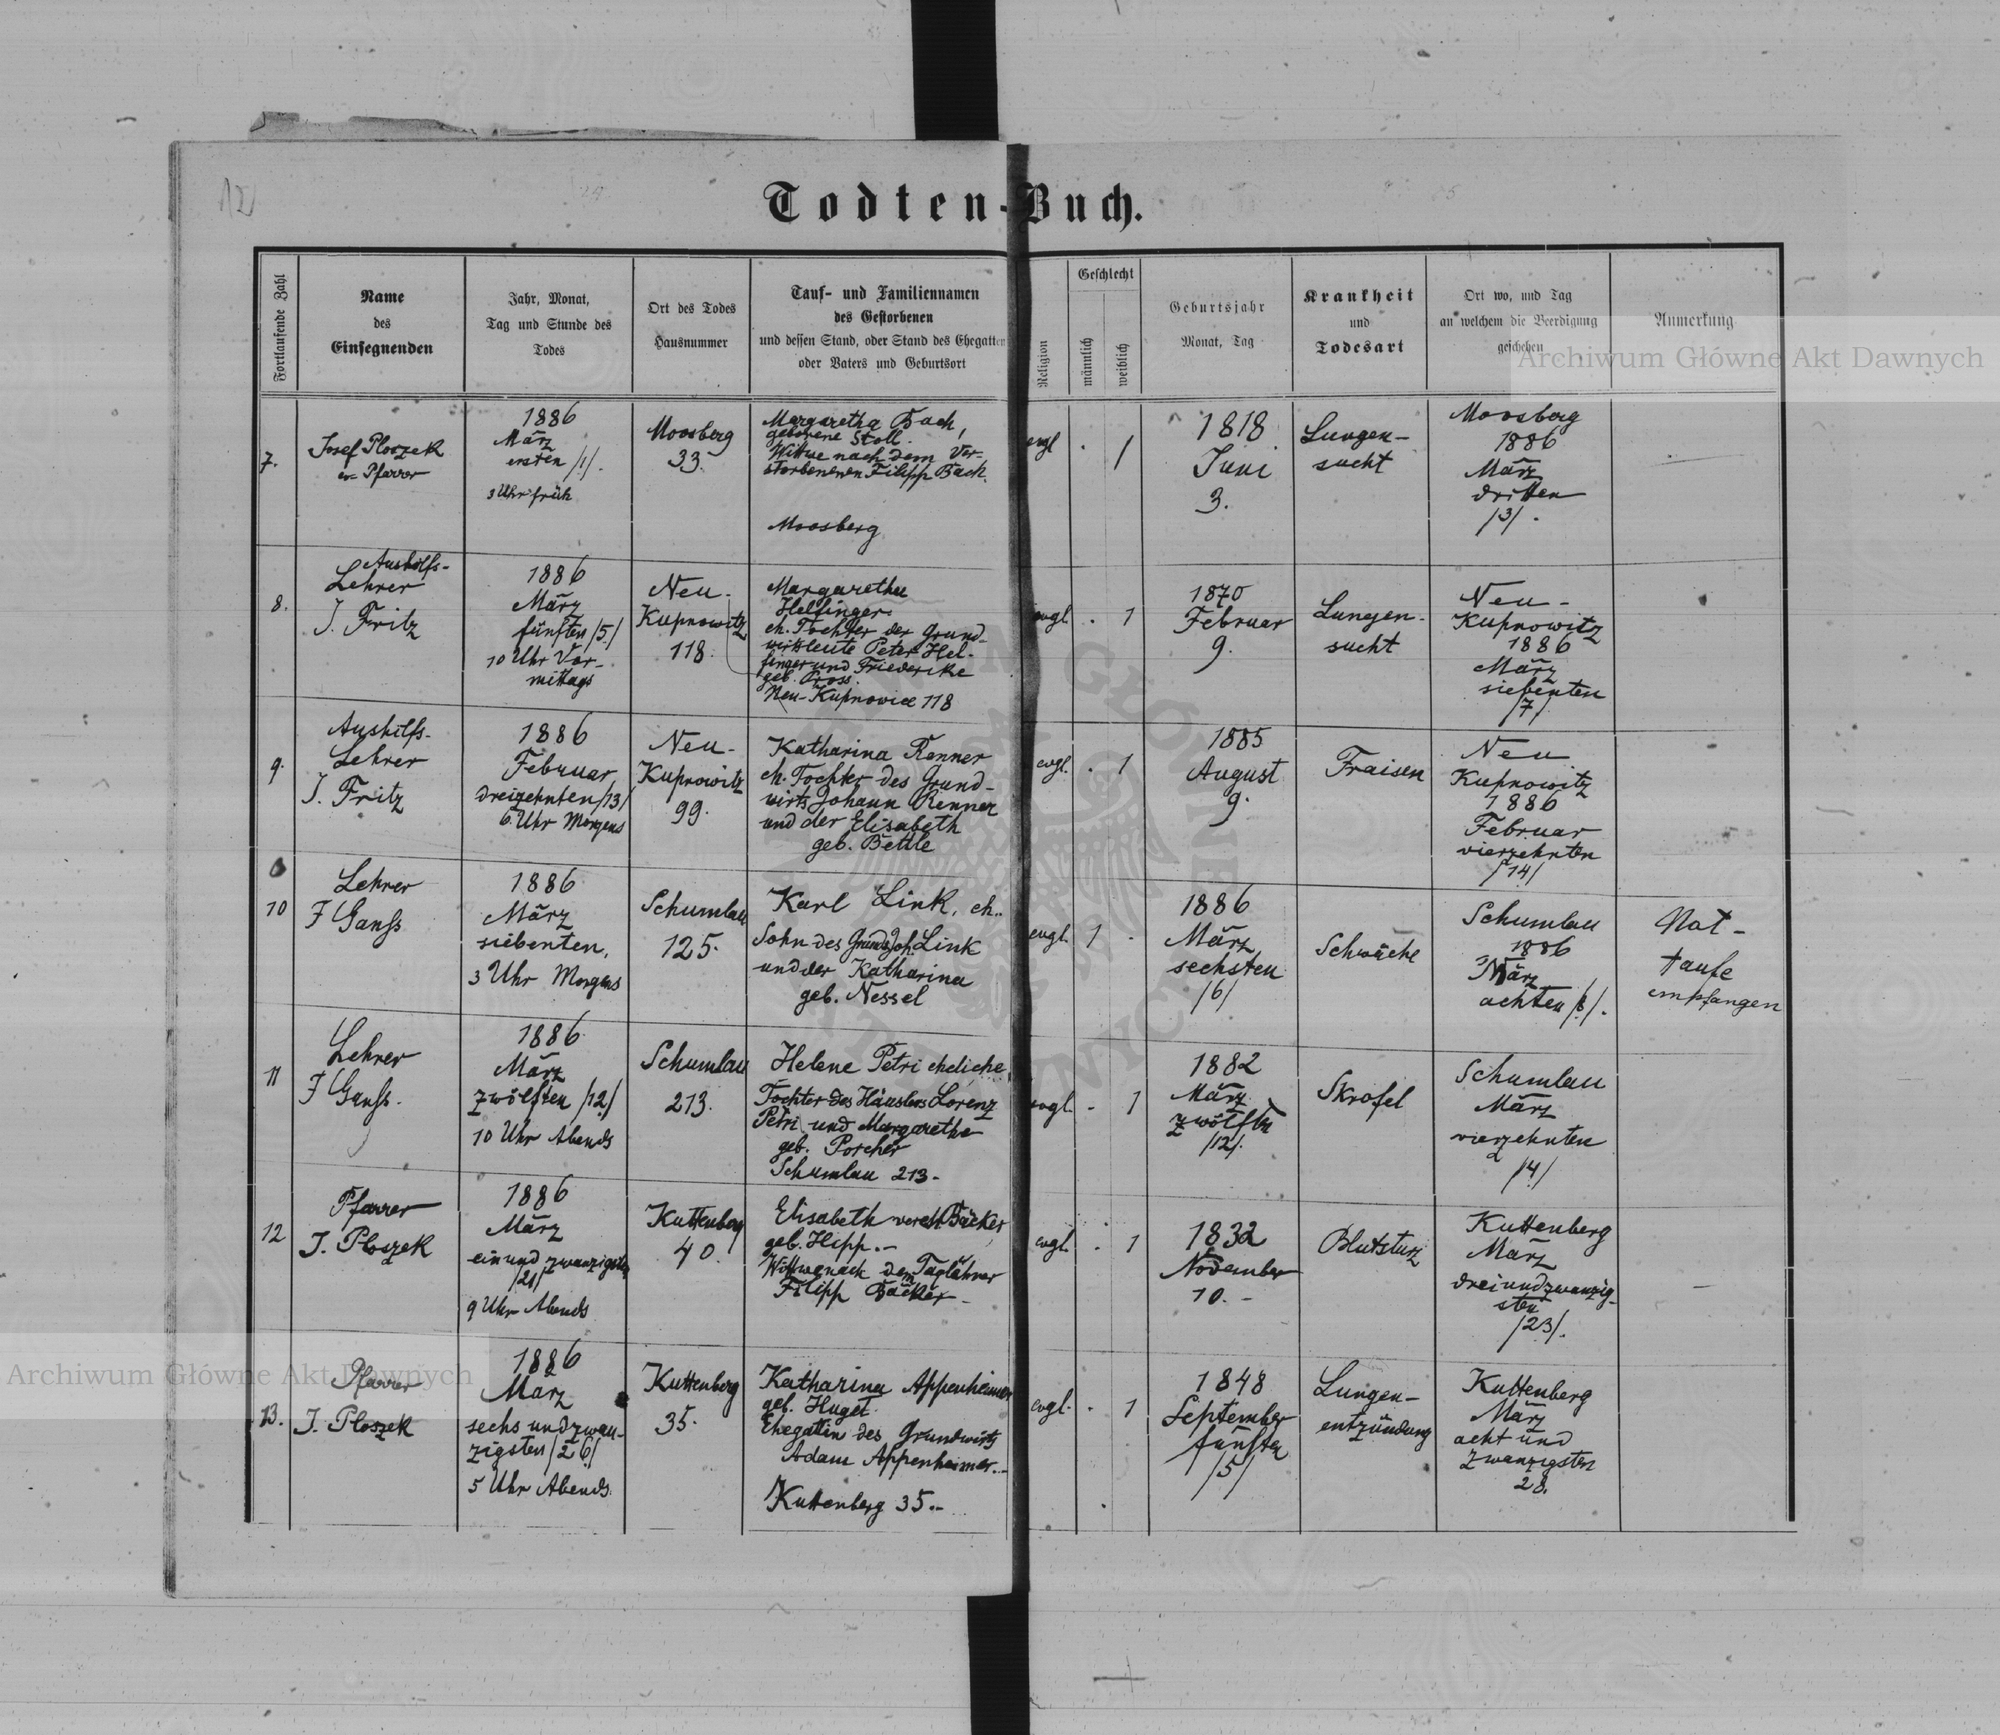 12
Todten-Buch.
Fortlaufende Zahl
Name
des
Einsegnenden
Jahr, Monat,
Tag und Stunde des
Todes
Ort des Todes
Hausnummer
Tauf- und Familiennamen
des Gestorbenen
und dessen Stand, oder Stand des Ehegatten
oder Vaters und Geburtsort
Religion
Geschlecht
männlich
weiblich
Geburtsjahr
Monat, Tag
Krankheit
und
Todesart
Ort wo, und Tag
an welchem die Beerdigung
geschehen
Anmerkung
Archiwum Główne Akt Dawnych
7.
Josef Ploszek
ev. Pfarrer
1886
März
ersten /1/.
3 Uhr früh
Moosberg
33.
Margaretha Bach,
geborene Stoll.
Wittwe nach dem Ver-
storbenenen Filipp Bach.
Moosberg
evgl
.
1
1818
Juni
3.
Lungen-
sucht
Moosberg
1886
März
dritten
/3/.
8.
Aushilfs-
Lehrer
J. Fritz
1886
März
fünften /5/
10 Uhr Vor-
mittags
Neu-
Kupnowitz
118.
Margaretha
Helfinger.
eh. Tochter der Grund-
wirtsleute Peter Hel-
finger und Friedericke
geb. Pross.
Neu-Kupnovice 118
evgl.
.
1
1870
Februar
9.
Lungen-
sucht
Neu-
Kupnowitz
1886
März
siebenten
/7/
9.
Aushilfs-
Lehrer
J. Fritz
1886
Februar
dreizehnten /13/
6 Uhr Morgens
Neu-
Kupnowitz
99.
Katharina Renner
eh. Tochter des Grund-
wirts Johann Renner
und der Elisabeth
geb. Bettle
evgl.
.
1
1885
August
9.
Fraisen
Neu
Kupnowitz
1886
Februar
vierzehnten
/14/
10
Lehrer
F Ganss
1886
März
siebenten,
3 Uhr Morgens
Schumlau
125.
Karl Link, eh.
Sohn des Grundw. Joh. Link
und der Katharina
geb. Nessel
evgl.
1
.
1886
März
sechsten
/6/
Schwäche
Schumlau
1886
März
achten /8/.
Not-
taufe
empfangen
11
Lehrer
F Ganss.
1886
März
zwölften /12/
10 Uhr Abends
Schumlau
213.
Helene Petri eheliche
Tochter des Häuslers Lorenz
Petri und Margarethe
geb. Porcher
Schumlau 213.
evgl.
-
1
1882
März
zwölften
/12/.
Skrofel
Schumlau
März
vierzehnten
/4/
12
Pfarrer
J. Ploszek
1886
März
einundzwanzigsten
/21/
9 Uhr Abends
Kuttenberg
40.
Elisabeth vereh. Bäcker,
geb. Hepp.-
Wittwe nach dem Taglöhner
Filipp Bäcker-
evgl.
.
1
1832
November
10.-
Blutsturz
Kuttenberg
März
dreiundzwanzig-
sten
/23/.
-
13.
Pfarrer
J. Ploszek
1886
März
sechs und zwan-
zigsten /26/
5 Uhr Abends.
Kuttenberg
35.
Katharina Appenheimer
geb. Huget.
Ehegattin des Grundwirts
Adam Appenheimer.-
Kuttenberg 35.-
evgl.
.
1
1848
September
fünften
/5/
Lungen-
entzündung
Kuttenberg
März
acht und
zwanzigsten
28.
Archiwum Główne Akt Dawnych